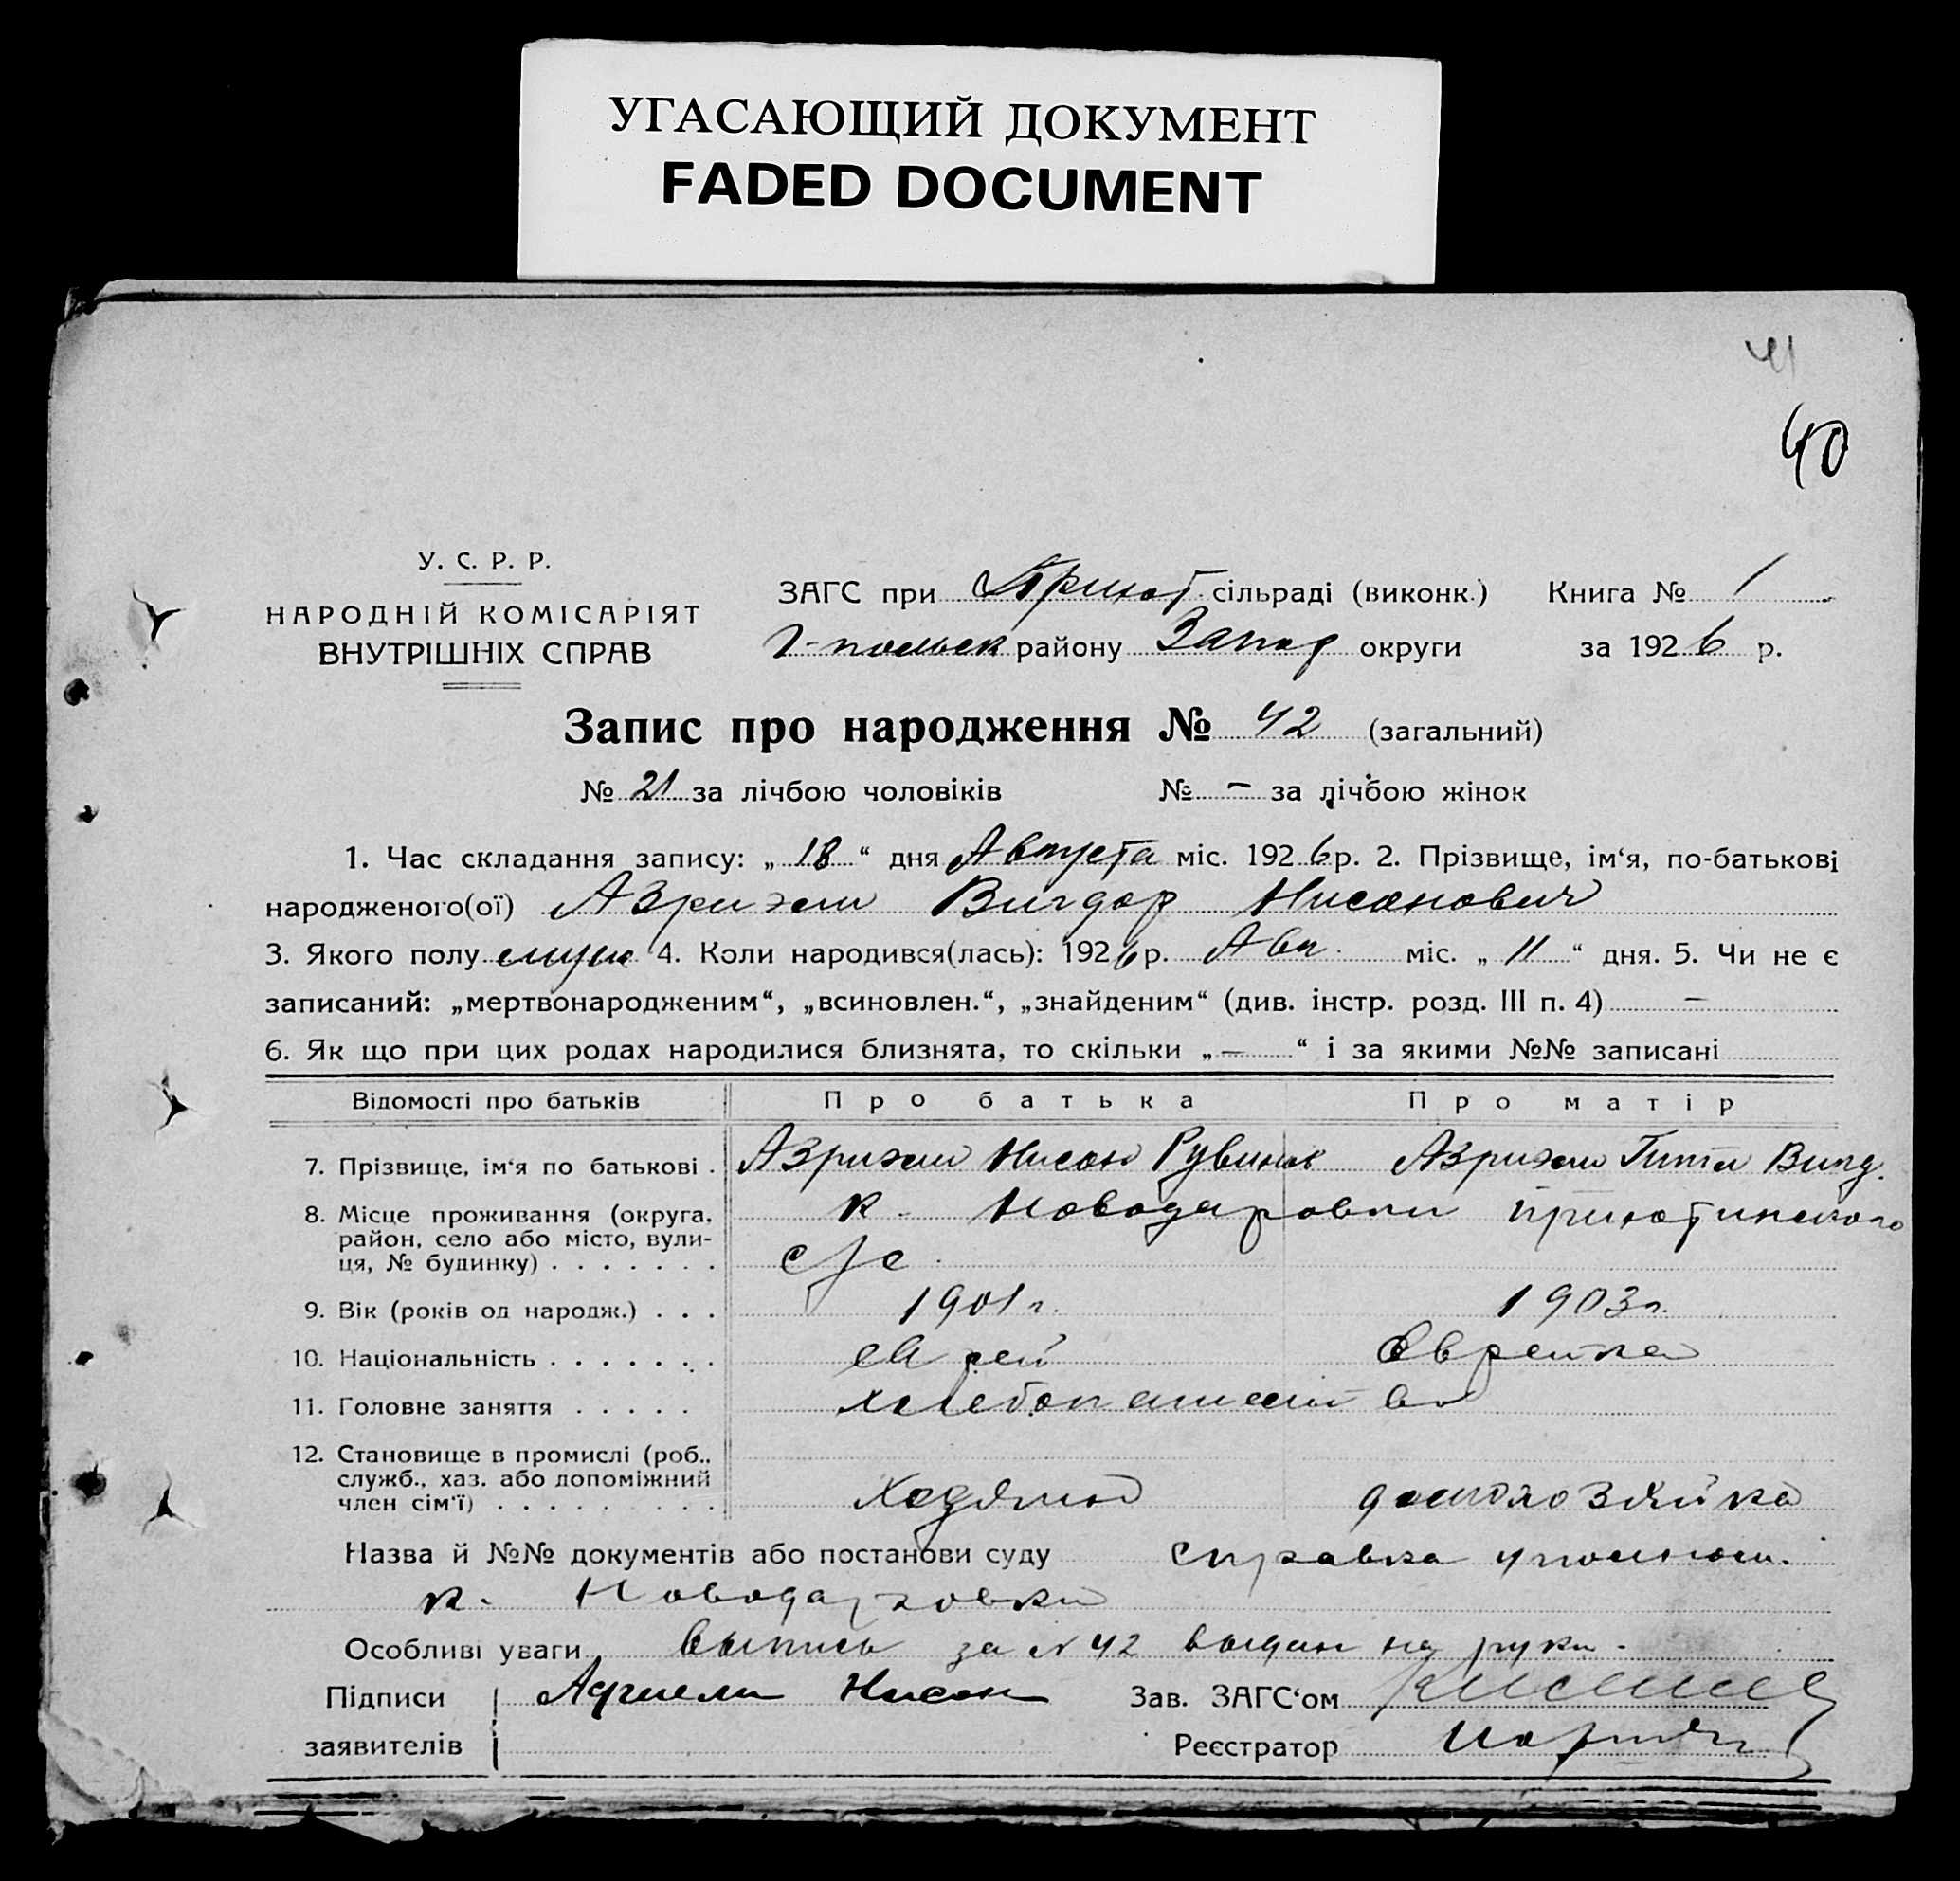 УГАСАЮЩИЙ ДОКУМЕНТ
FADED DOCUMENT
41
40
У. С. Р. Р.
НАРОДНІЙ КОМІСАРІЯТ
ВНУТРІШНІХ СПРАВ
ЗАГС при Приют. сільраді (виконк.) Книга № 1
Г-польск району Запор округи за 1926 р.
Запис про народження № 42 (загальний)
№ 21 за лічбою чоловіків № – за лічбою жінок
1. Час складання запису: „18“ дня Августа міс. 1926 р. 2. Прізвище, ім‘я, по-батькові
народженого(ої) Азриэли Вигдор Нисонович
3. Якого полу муж 4. Коли народився(лась): 1926 р. Авг. міс. „11“ дня. 5. Чи не є
записаний: „мертвонародженим“, „всиновлен.“, „знайденим“ (див. інстр. розд. III п. 4) –
6. Як що при цих родах народилися близнята, то скільки „–“ і за якими №№ записані
Відомості про батьків Про батька Про матір
7. Прізвище, ім‘я по батькові . Азриэли Нисон Рувинов Азриэли Гитля Вигд.
8. Місце проживання (округа, район, село або місто, вулиця, № будинку) . . . . . . . к. Новодаровки Приютинского
с/с.
9. Вік (років од народж.) . . . 1901 г. 1903 г.
10. Національність . . . . . . . еврей Еврейка
11. Головне заняття . . . . . хлебопашество
12. Становище в промислі (роб., служб., хаз. або допоміжний член сім‘ї) . . . . . . . . . домохозяйка
Назва й №№ документів або постанови суду Справка уполном.
к. Новодаровки
Особливі уваги выпись за № 42 выдан на руки.
Підписи Азриели Нисон Зав. ЗАГС‘ом
заявителів Реєстратор